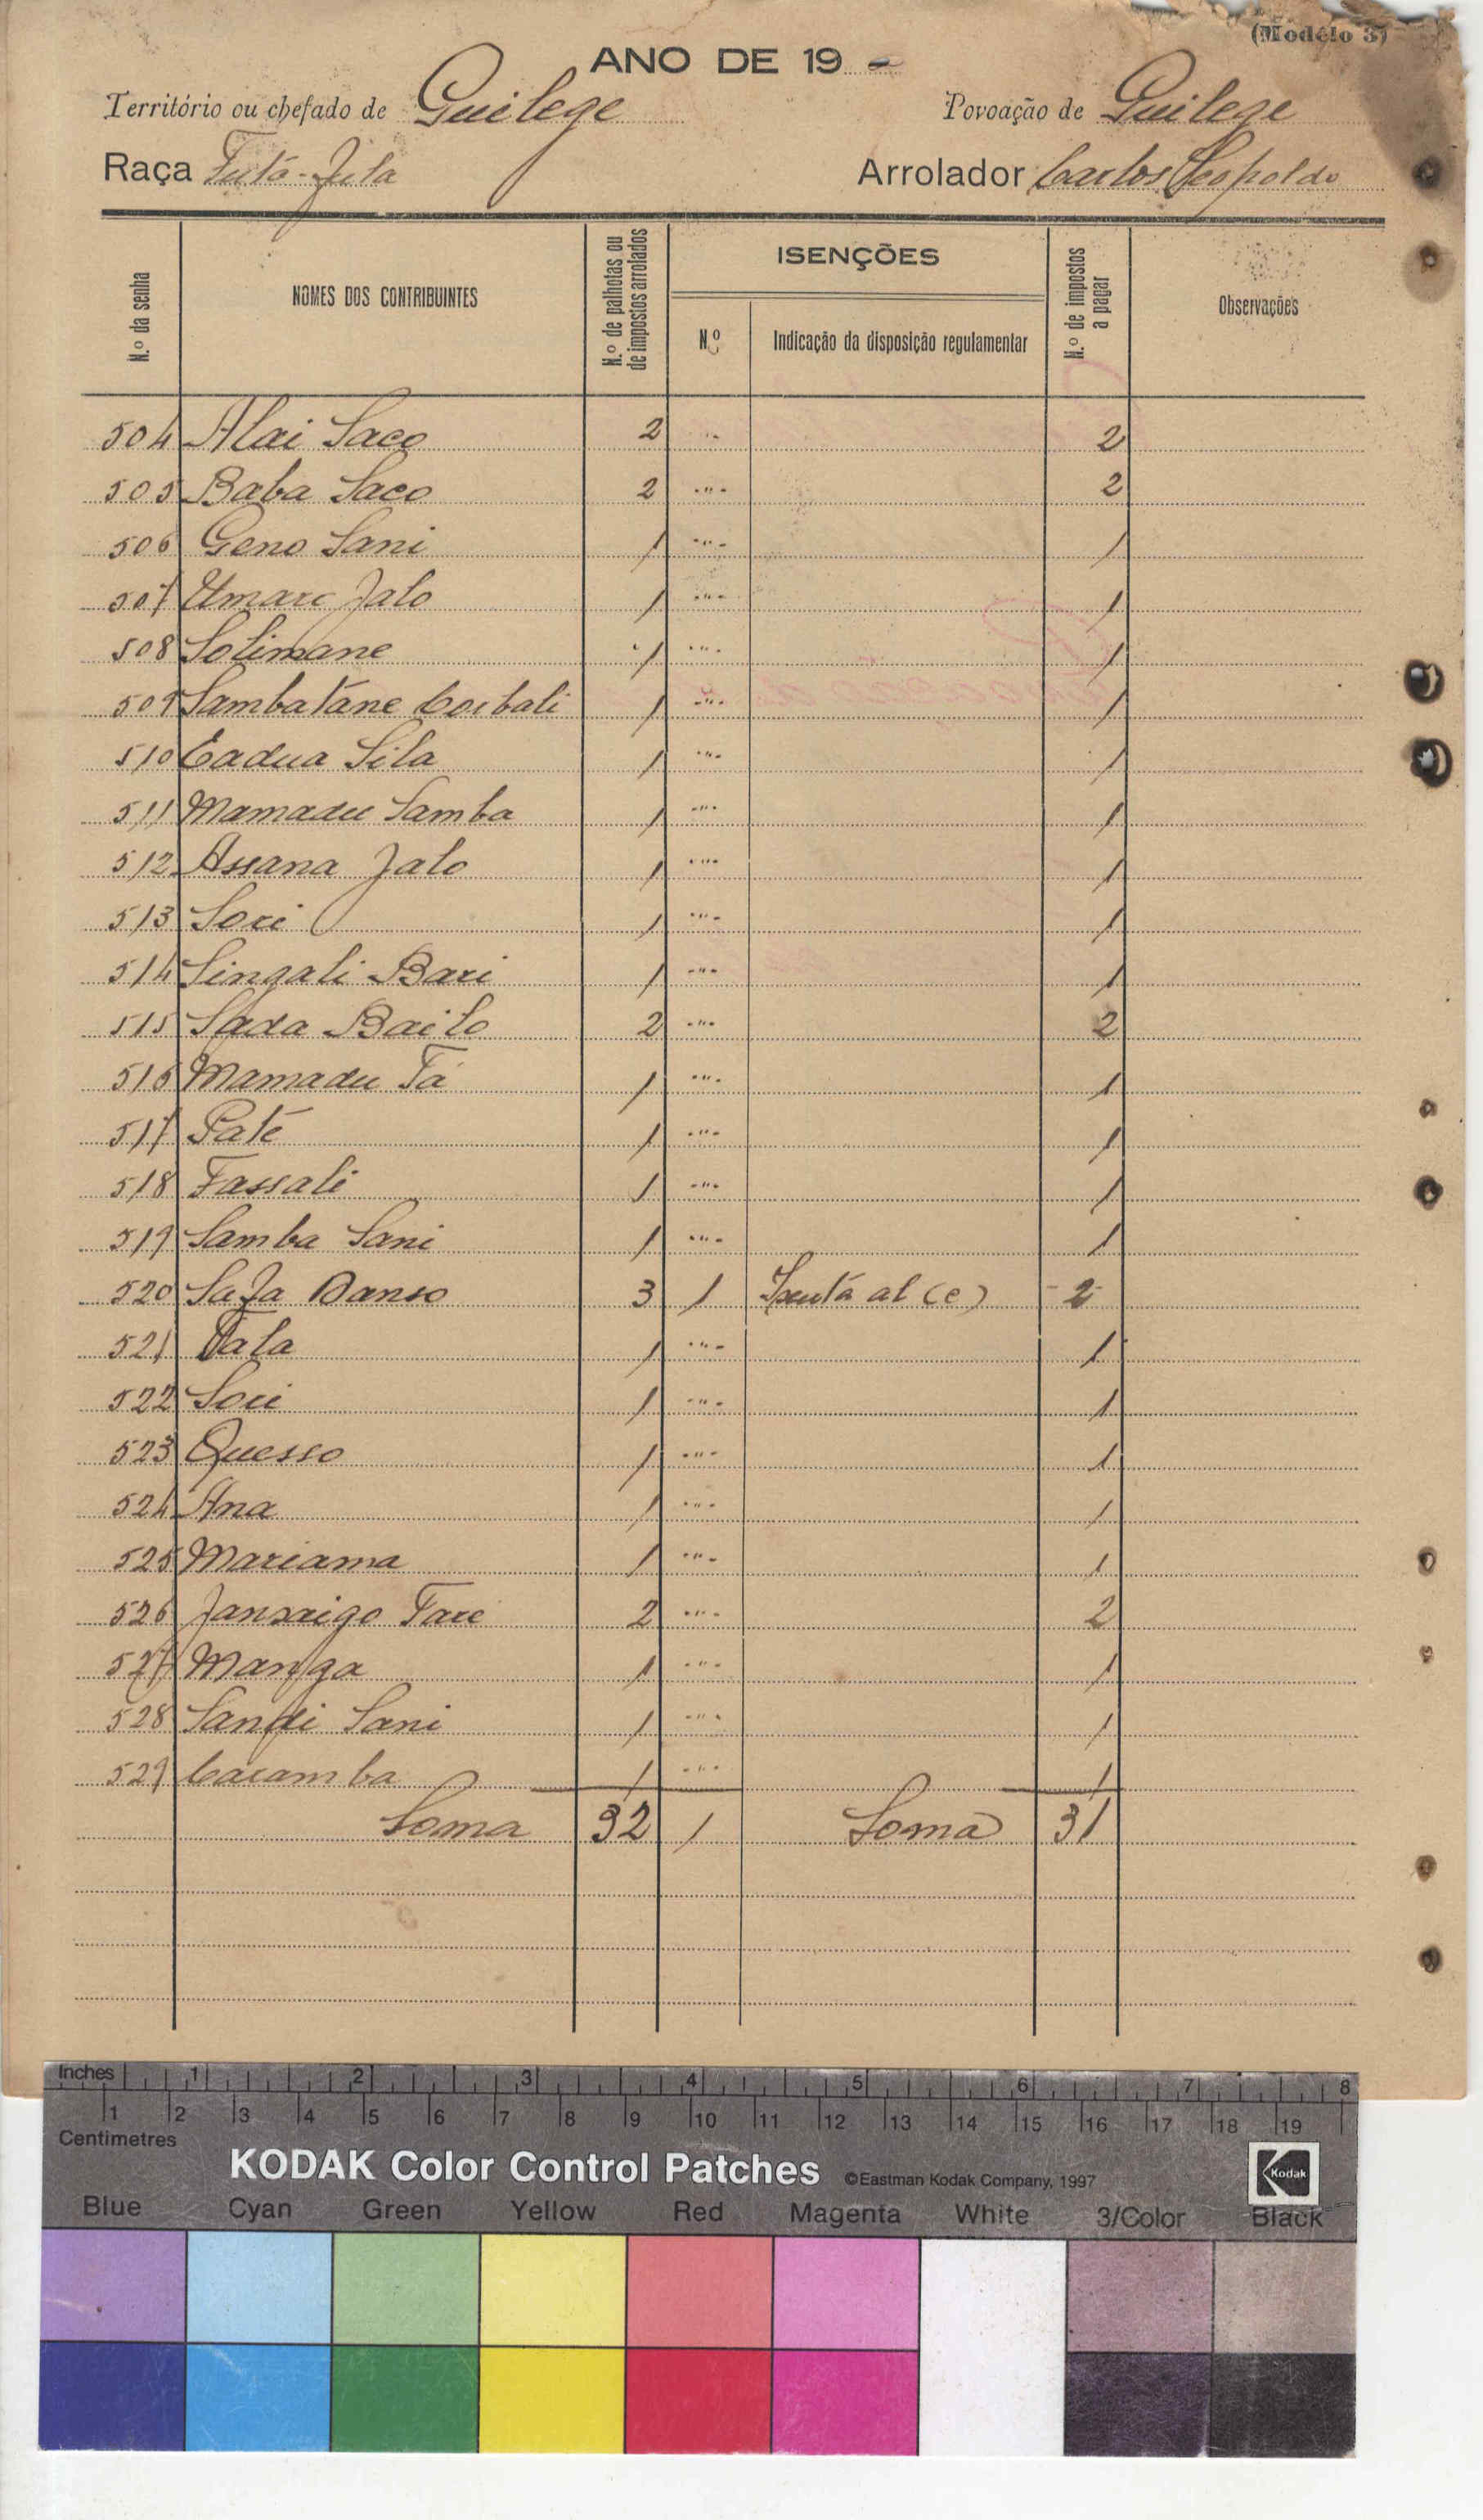 (Modêlo 3)
ANO DE 19 -
Território ou chefado de Guilege Povoação de Guilege
Raça Futá-Fula Arrolador Carlos Leopoldo
N.º da senha
NOMES DOS CONTRIBUINTES
N.º de palhotas ou de impostos arrolados
ISENÇÕES
N.º
Indicação da disposição regulamentar
N.º de impostos a pagar
Observações
504 Alai Saco 2 -"- 2
505 Baba Saco 2 -"- 2
506 Geno Sani 1 -"- 1
507 Umaro Jalo 1 -"- 1
508 Solimane 1 -"- 1
509 Sambatáne Coibali 1 -"- 1
510 Cadua Sila 1 -"- 1
511 Mamadu Samba 1 -"- 1
512 Assana Jalo 1 -"- 1
513 Sori 1 -"- 1
514 Singali Bari 1 -"- 1
515 Sada Bailo 2 -"- 2
516 Mamadu Tá 1 -"- 1
517 Paté 1 -"- 1
518 Fassali 1 -"- 1
519 Samba Sani 1 -"- 1
520 Danso 3 1 al (e) 2
521 1 -"- 1
522 Sori 1 -"- 1
523 Quesso 1 -"- 1
524 Ana 1 -"- 1
525 Mariama 1 -"- 1
526 2 -"- 2
527 Manga 1 -"- 1
528 Sani 1 -"- 1
529 Caramba 1 -"- 1
Soma 32 1 Soma 31
Inches 1 2 3 4 5 6 7 8
1 2 3 4 5 6 7 8 9 10 11 12 13 14 15 16 17 18 19
Centimetres
KODAK Color Control Patches ©Eastman Kodak Company, 1997 Kodak
Blue Cyan Green Yellow Red Magenta White 3/Color Black